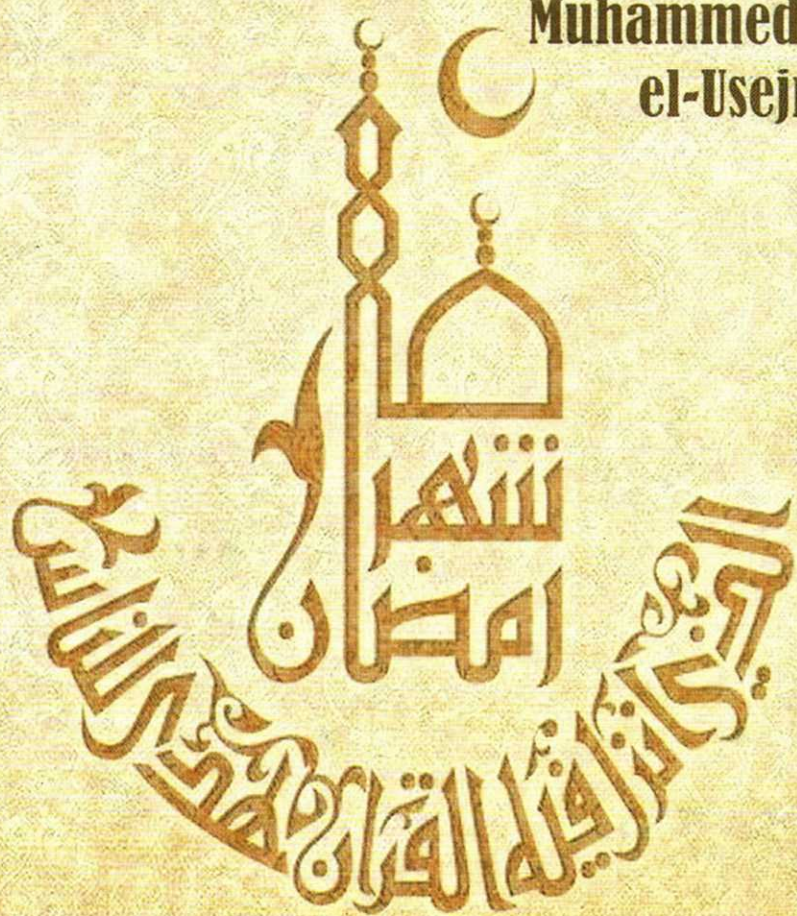 Muhammed
el-Usej
شهر
رمضان
الذي انزل فيه القرآن هدى للناس